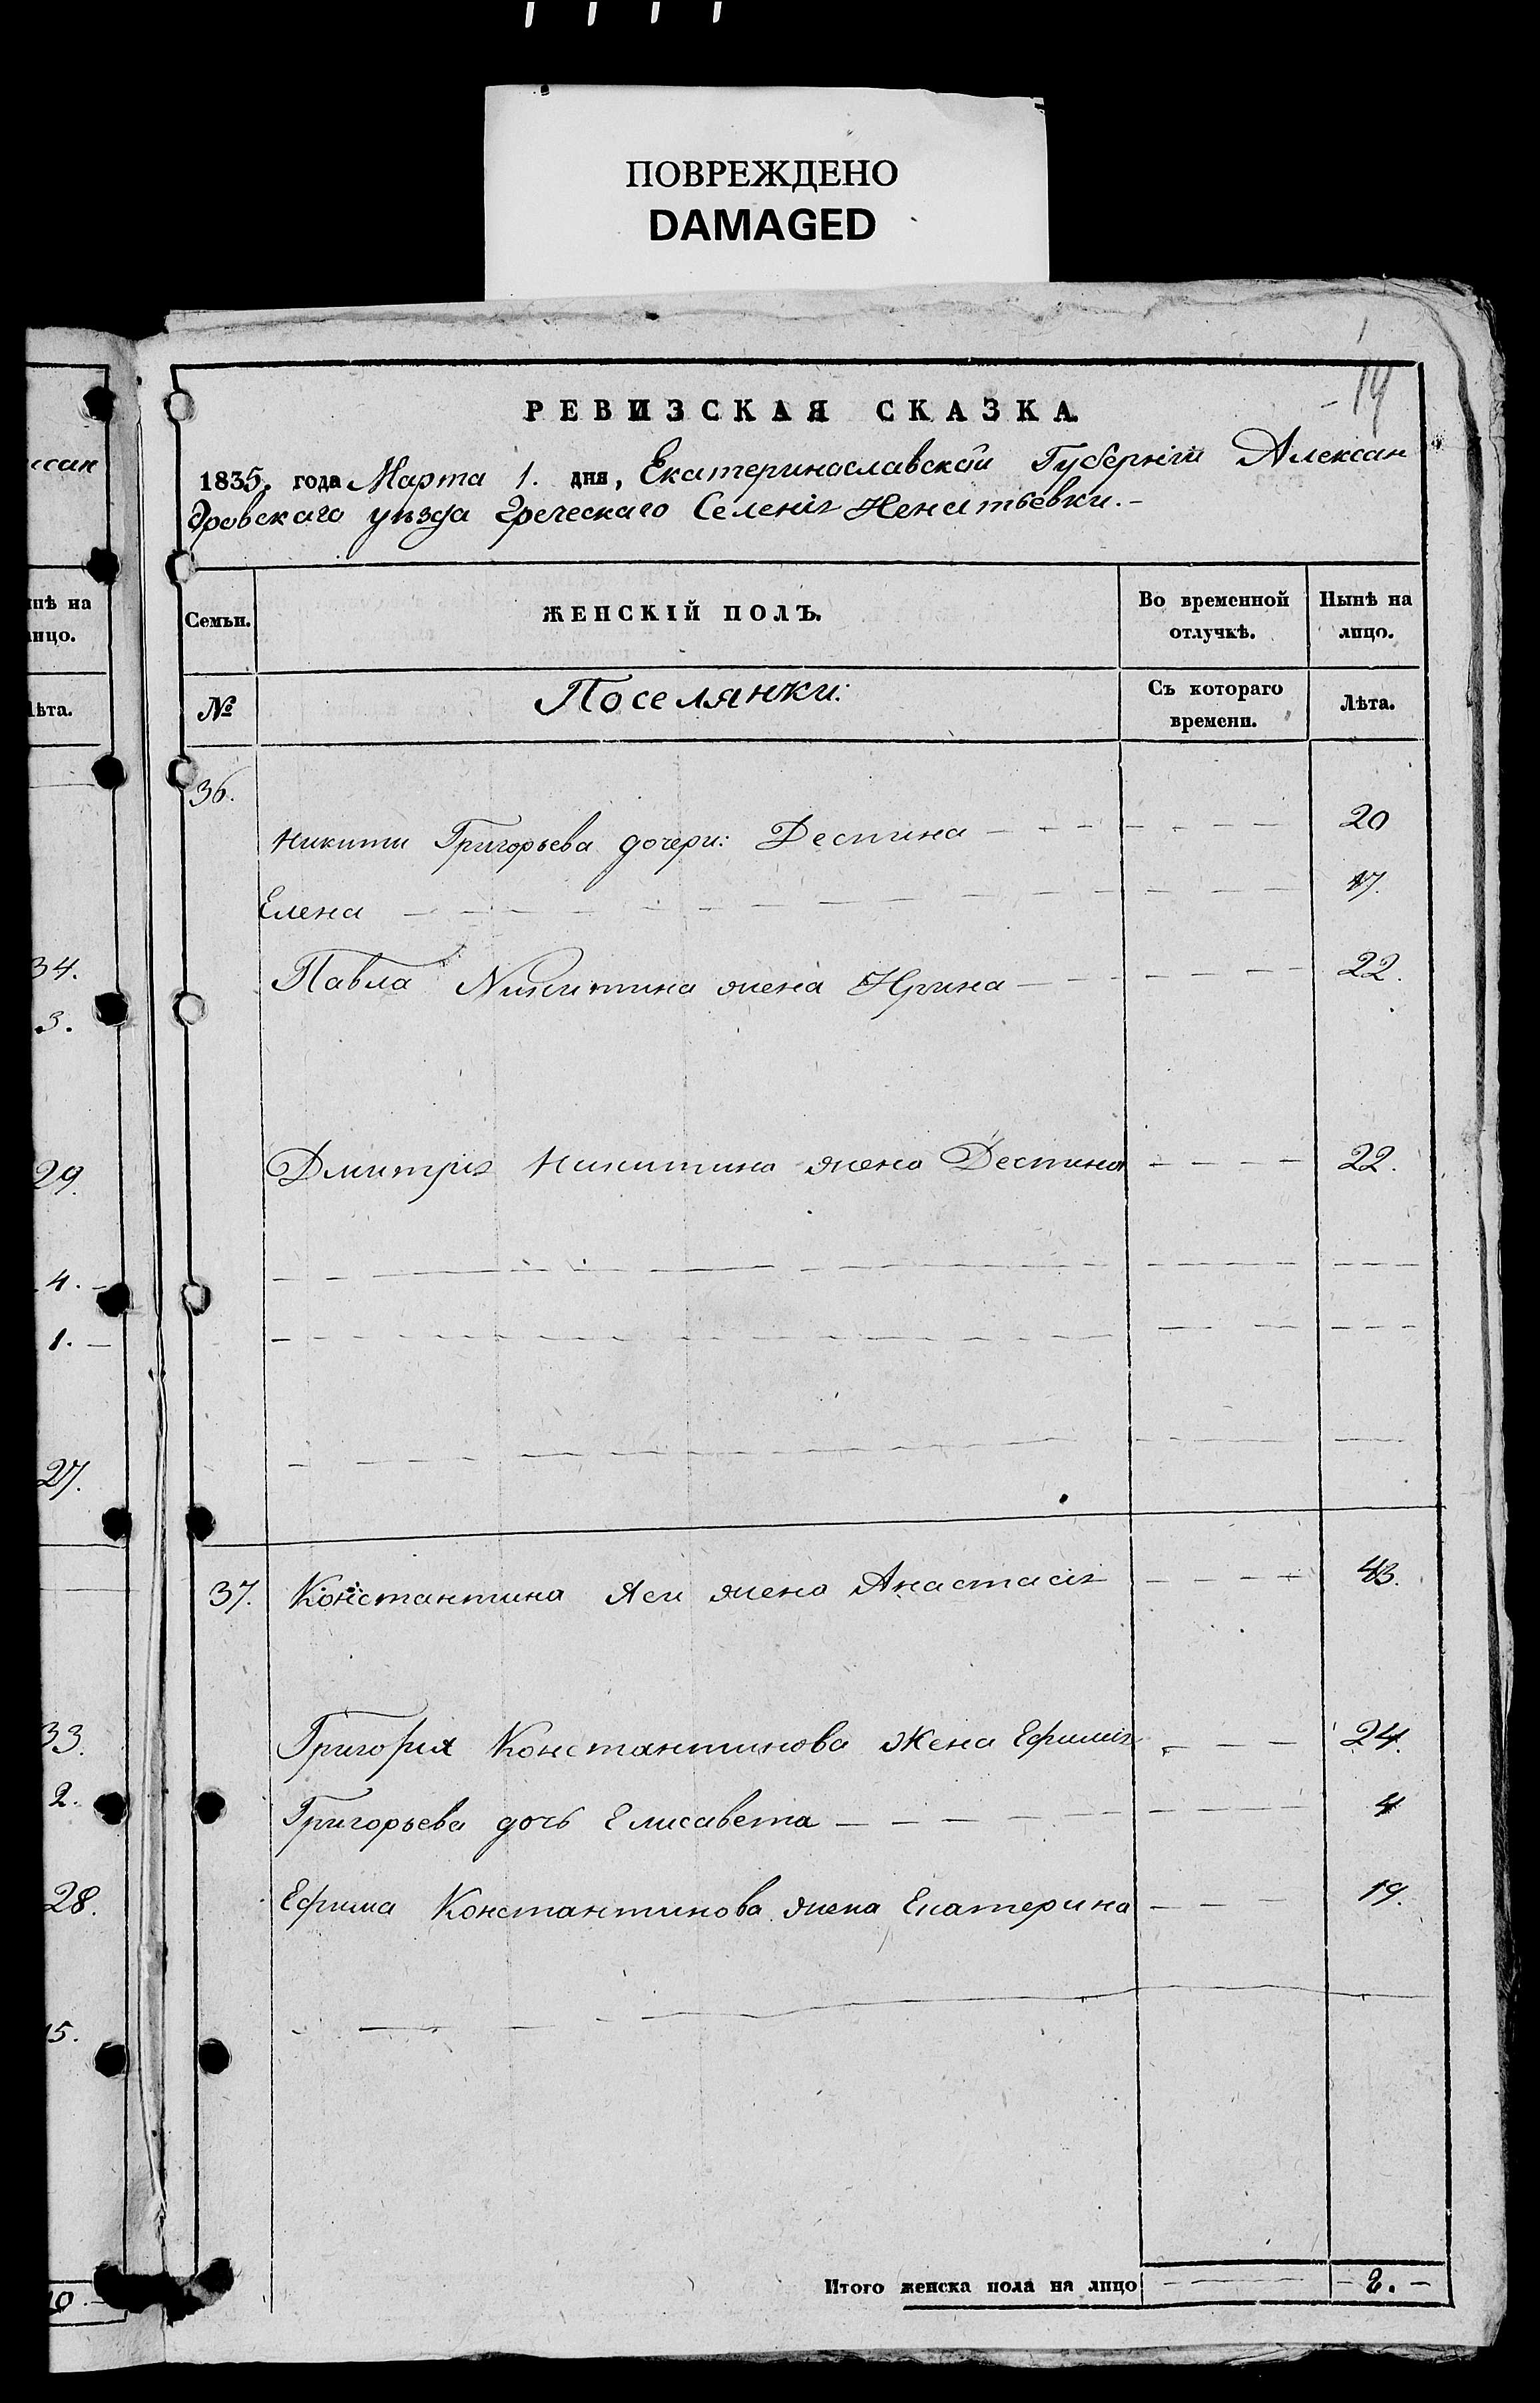 ПОВРЕЖДЕНО
DAMAGED
14
РЕВИЗСКАЯ СКАЗКА
1835. года Марта 1. дня, Екатеринославской Губерніи Алексан
дровскаго уѣзда Греческаго Селенія Игнатьевки.-
Семьи. ЖЕНСКІЙ ПОЛЪ. Во временной отлучкѣ. Нынѣ на лицо.
№ Поселянки: Съ котораго времени. Лѣта.
36.
Никиты Григорьева дочери: Деспина 20
Елена 17.
Павла Никитина жена Ирина 22.
Дмитрія Никитина жена Деспина 22.
37. Константина Яги жена Анастасія 43.
Григорія Константинова жена Ефимія 24.
Григорьева дочь Елисавета 4
Ефима Константинова жена Екатерина 19.
Итого женска пола на лицо - 8. -
ссан
нѣ на
ицо.
ѣта.
34.
3.
29.
4. -
1. -
27.
33.
2.
28.
15.